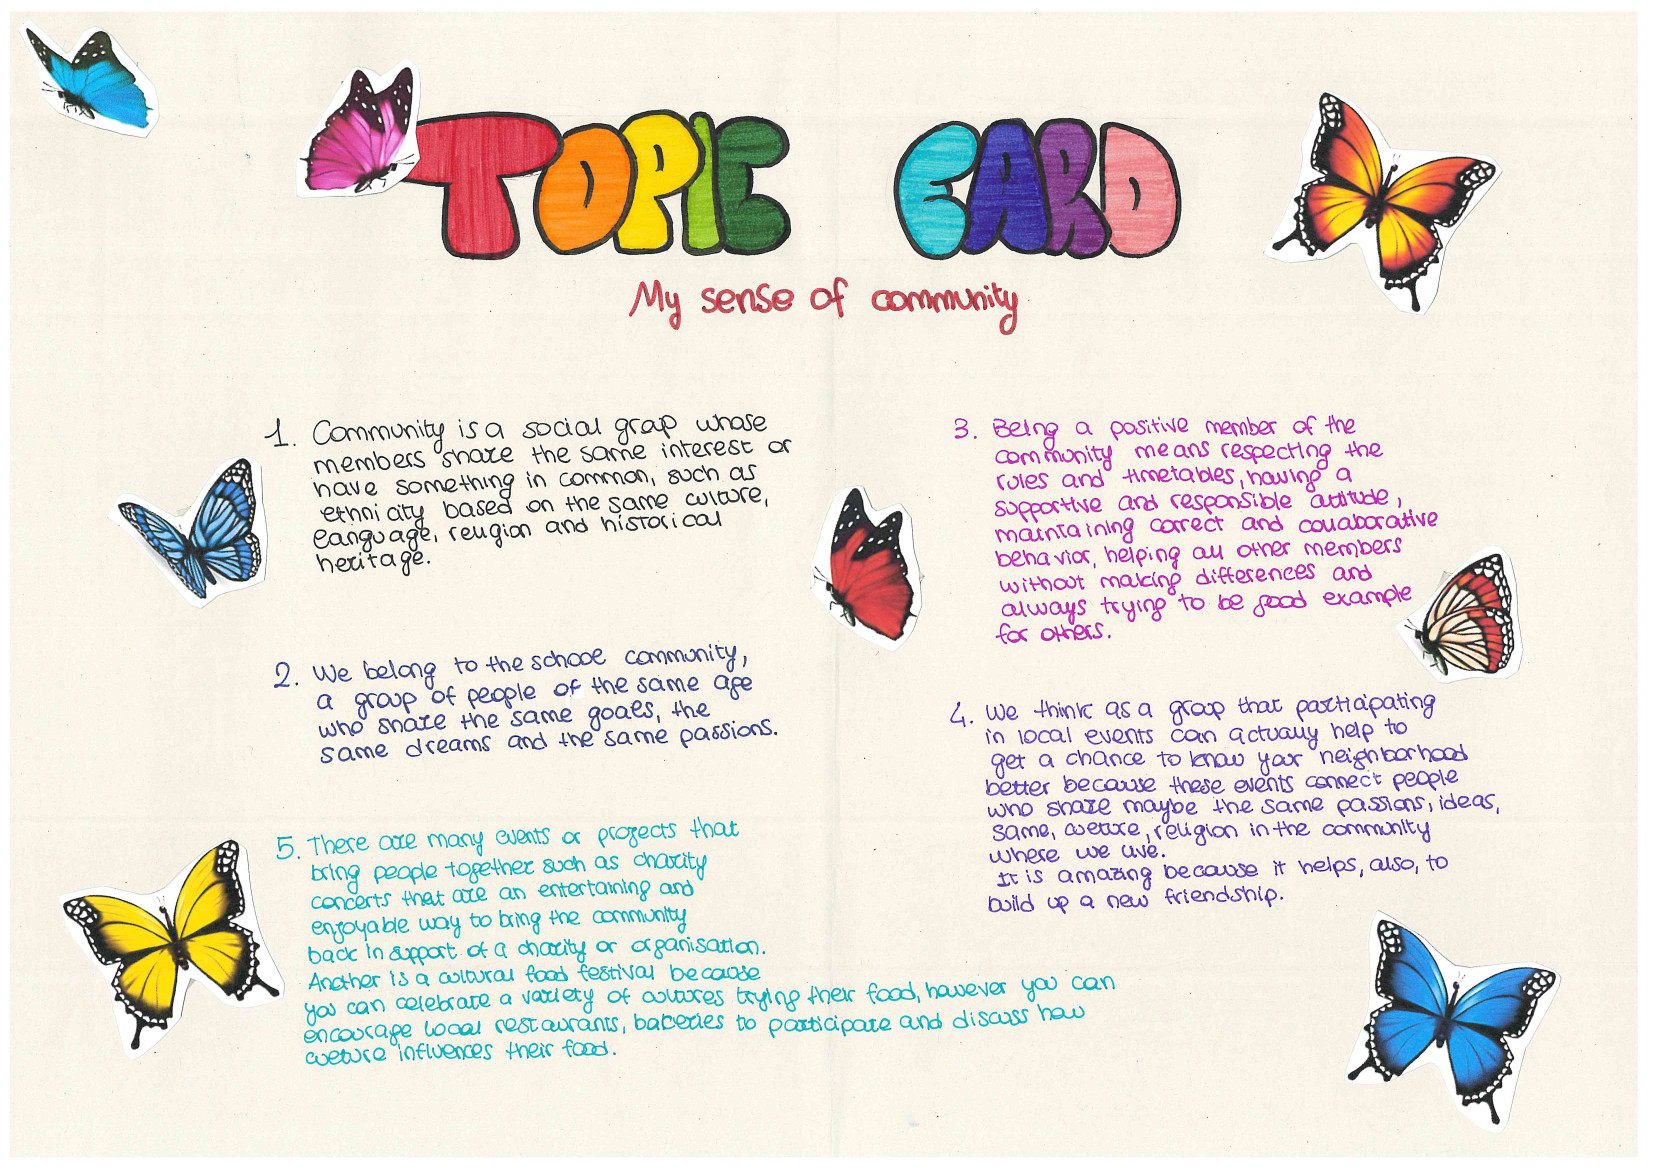 TOPIC CARD
My sense of community
1. Community is a social group whose
members share the same interest or
have something in common, such as
ethnicity based on the same culture,
language, religion and historical
heritage.
2. We belong to the school community,
a group of people of the same age
who share the same goals, the
same dreams and the same passions.
3. Being a positive member of the
community means respecting the
rules and timetables, having a
supportive and responsible attitude,
maintaining correct and collaborative
behavior, helping all other members
without making differences and
always trying to be good example
for others.
4. We think as a group that participating
in local events can actually help to
get a chance to know your neighborhood
better because these events connect people
who share maybe the same passions, ideas,
same, culture, religion in the community
where we live.
It is amazing because it helps, also, to
build up a new friendship.
5. There are many events or projects that
bring people together such as charity
concerts that are an entertaining and
enjoyable way to bring the community
back in support of a charity or organisation.
Another is a cultural food festival because
you can celebrate a variety of cultures trying their food, however you can
encourage local restaurants, bakeries to participate and discuss how
culture influences their food.